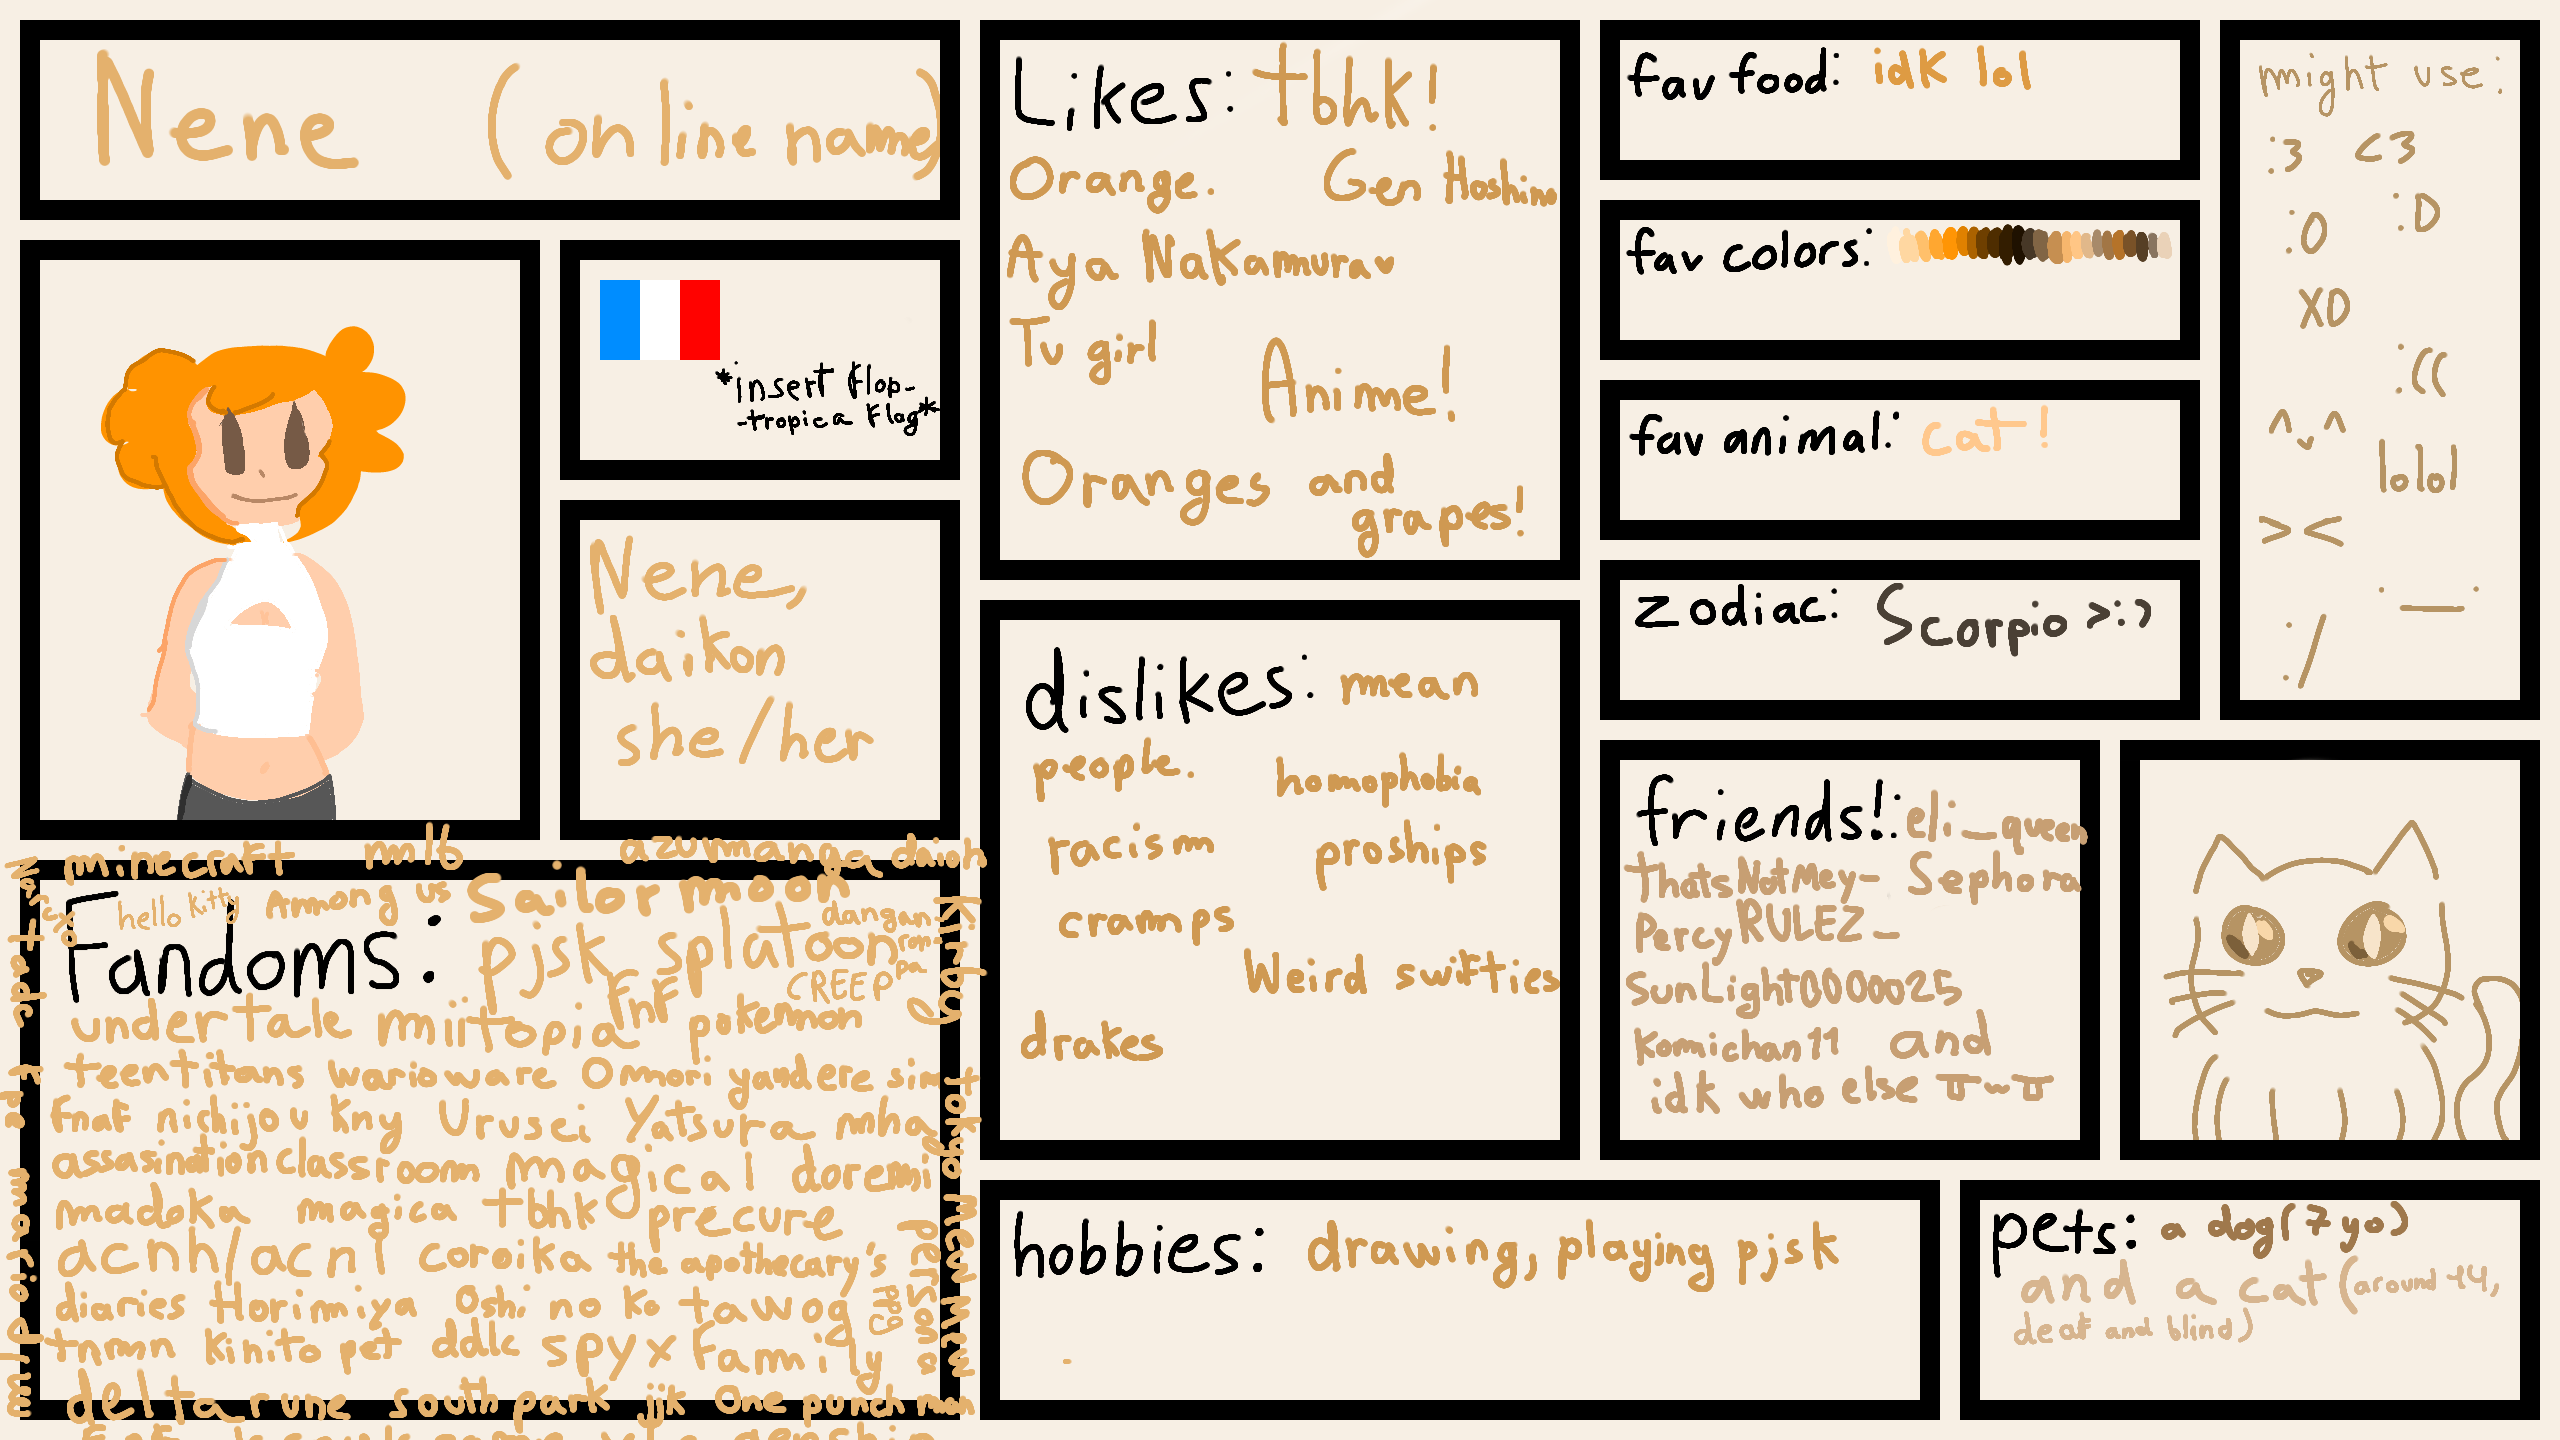 Nene (online name)
*insert flop-
-tropica flag*
Nene,
daikon
she/her
minecraft ml6 azumanga daioh
hello kitty Among us Sailor moon
Fandoms: pjsk splatoon dangan-
ron-
pa
CREEP
undertale miitopia fnf pokemon
teentitans warioware Omori yandere sim
fnaf nichijou kny Urusei Yatsura mha
assasinationclassroom magical doremi
madoka magica tbhk precure
acnh/acnl coroika the apothecary's
diaries Horimiya Oshi no ko tawog
PPG
tnmn kinito pet ddlc spy x family
deltarune south park jjk One punch man
genshin
Kirby
Tokyo Mew Mew
persona
tadc
mario
Likes: tbhk!
Orange. Gen Hoshino
Aya Nakamura♥
Tv girl
Anime!
Oranges and
grapes!
dislikes: mean
people. homophobia
racism proships
cramps
Weird swifties
drakes
hobbies: drawing, playing pjsk
fav food: idk lol
fav colors:
fav animal: cat!
zodiac: Scorpio >:)
might use:
:3 <3
:O :D
XD
:((
^ᴗ^
lolol
><
·__·
:/
friends!: eli_queen
ThatsNotMey- Sephora
PercyRULEZ_
SunLight0000025
Komichan11 and
idk who else ㅠ~ㅠ
pets: a dog(7yo)
and a cat (around 14,
deaf and blind)